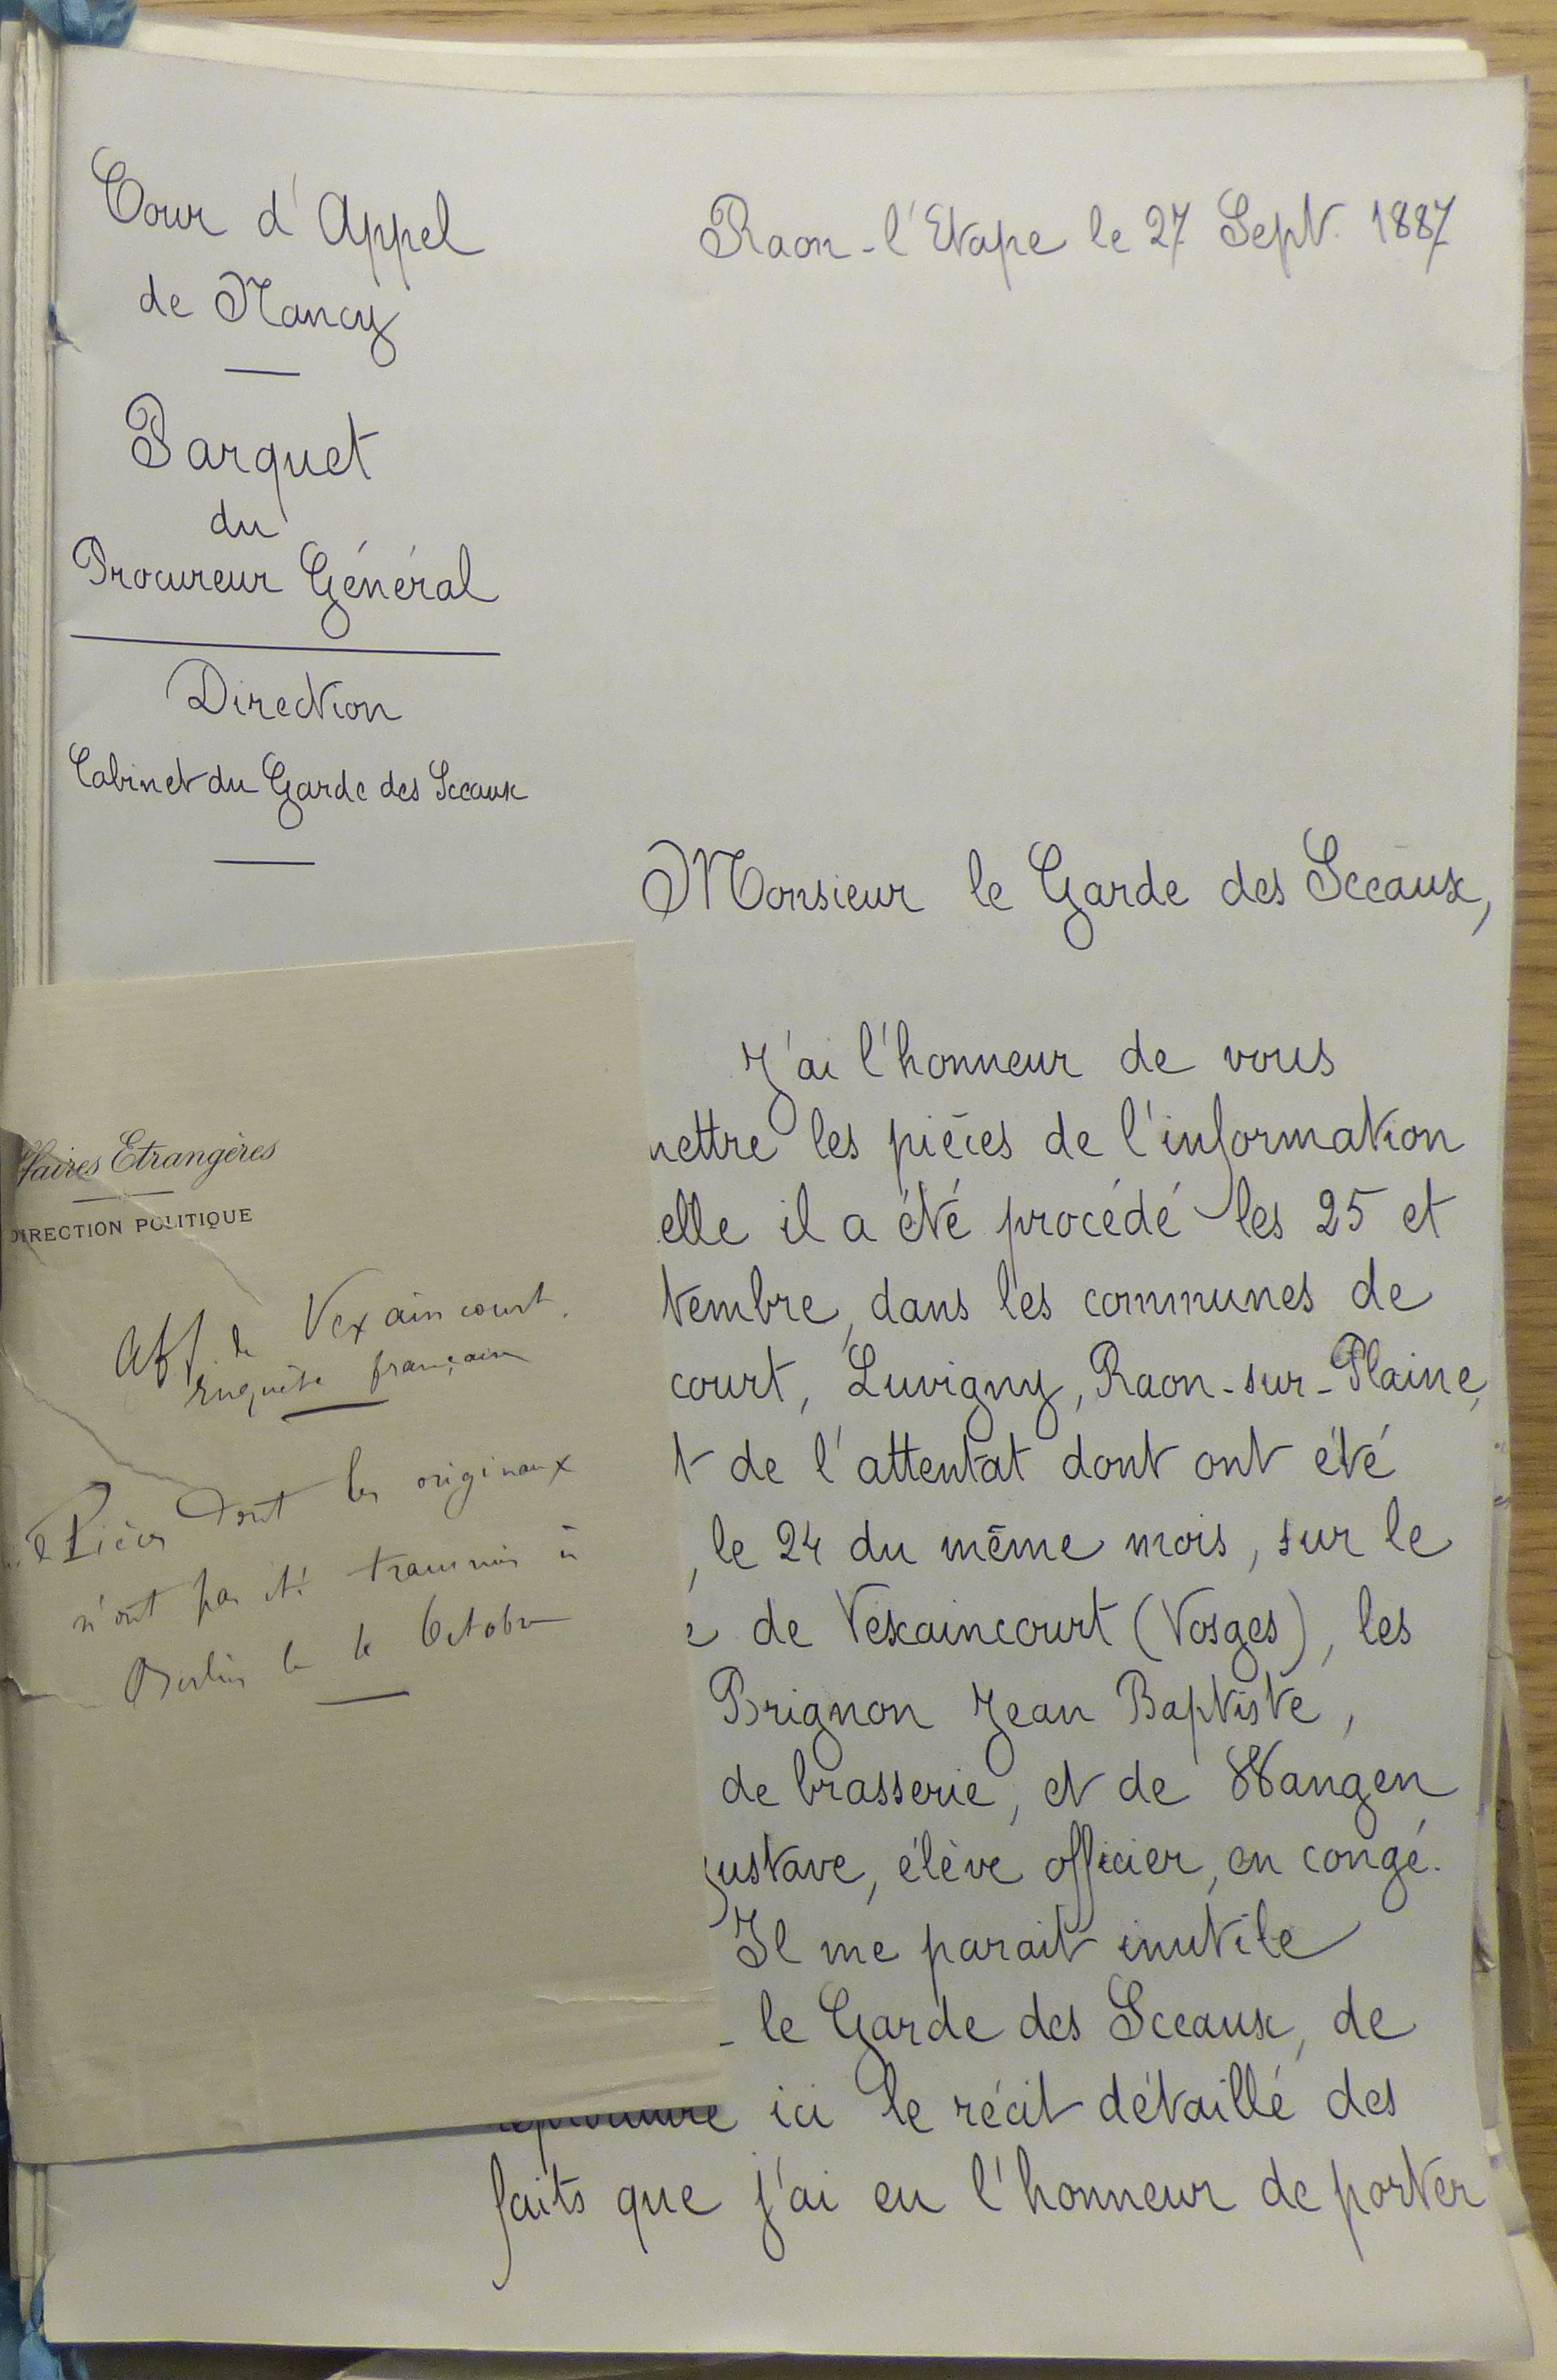 Cour d'Appel
de Nancy
Parquet
du
Procureur Général
Direction
Cabinet du Garde des Sceaux
Raon-l'Etape le 27 Sept. 1887
Monsieur le Garde des Sceaux,
J'ai l'honneur de vous
mettre les pièces de l'information
elle il a été procédé les 25 et
tembre, dans les communes de
court, Luvigny, Raon-sur-Plaine,
t de l'attentat dont ont été
, le 24 du même mois, sur le
e de Vexaincourt (Vosges), les
Brignon Jean Baptiste,
de brasserie, et de Wangen
gustave, élève officier, en congé.
Il me parait inutile
- le Garde des Sceaux, de
reproduire ici le récit détaillé des
faits que j'ai eu l'honneur de porter
ffaires Etrangères
DIRECTION POLITIQUE
Aff. de Vexaincourt.
Enquête française
Pièces dont les originaux
n'ont pas été transmis à
Berlin le Octobre